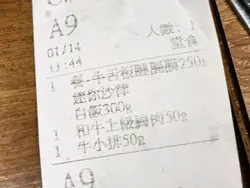 A9
人數: 1
01/14
堂食
11:44
1 餐-牛舌橫膈膜250g
迷你沙律
白飯300g
1 和牛上級肩肉50g
1 牛小排50g
A9